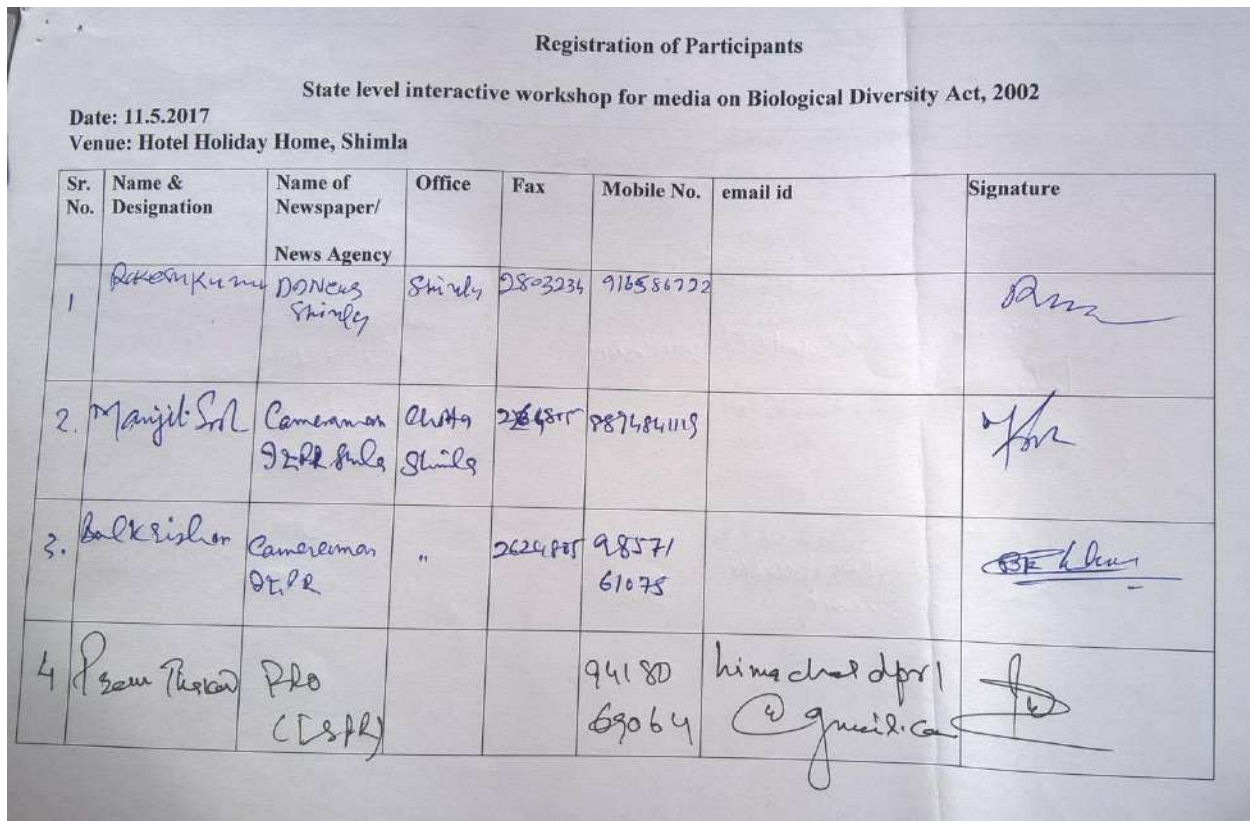 Registration of Participants
State level interactive workshop for media on Biological Diversity Act, 2002
Date: 11.5.2017
Venue: Hotel Holiday Home, Shimla
Sr. No. Name & Designation Name of Newspaper/ News Agency Office Fax Mobile No. email id Signature
1 Rakesh Kumar DD News Shimla Shimla 2803234 916586722
2. Manjit Cameraman I&PR Shimla Chotta Shimla 9874841119
3. Balkrishan Cameraman I&PR " 2624805 98571 61075
4 Prem Thakur PRO (I&PR) 94180 69064 himachaldpr1 @gmail.com